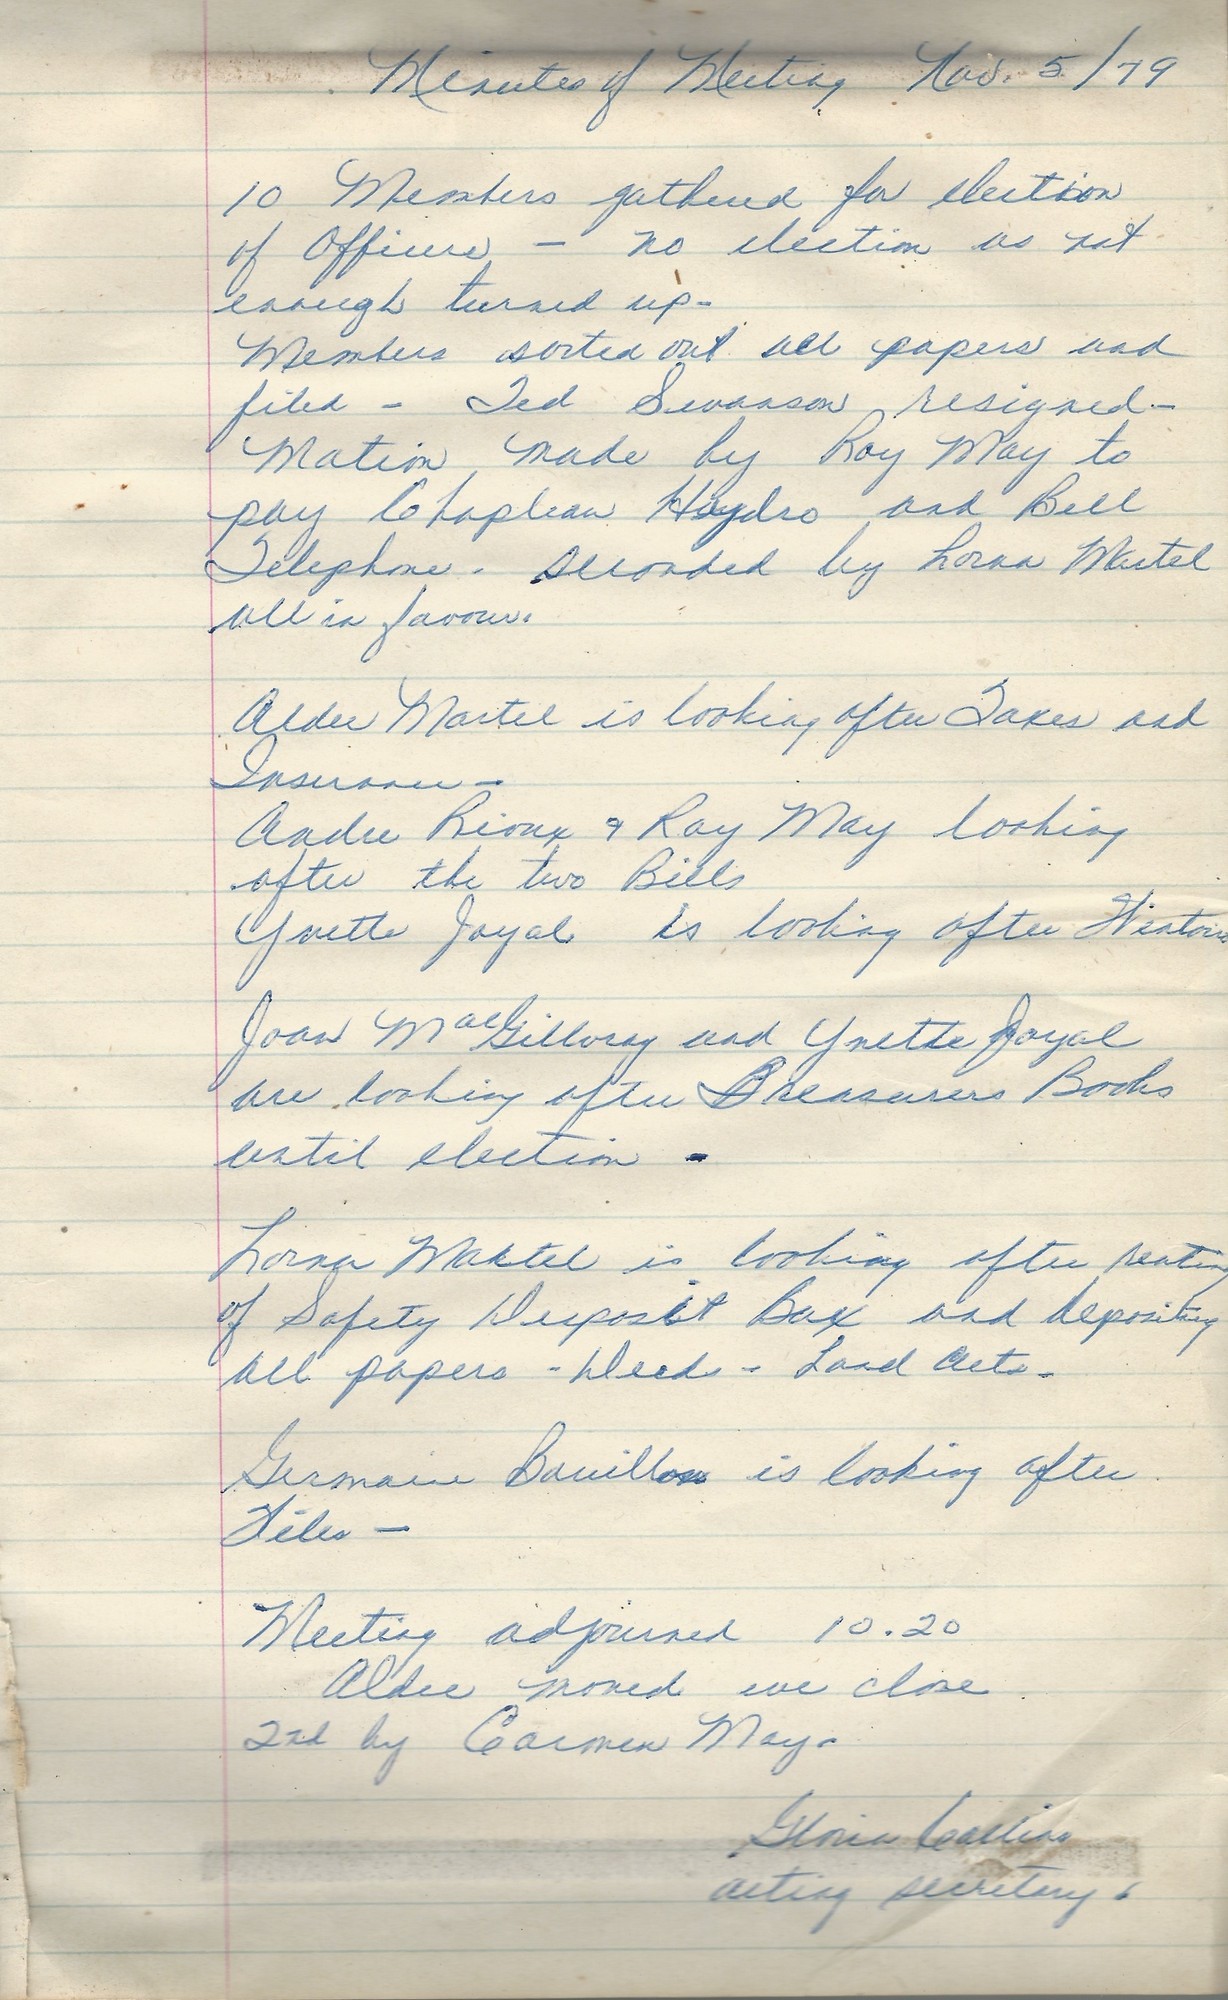 Minutes of Meeting Nov. 5/79
10 Members gathered for election
of Officers - no election as not
enough turned up-
Members sorted out all papers and
filed - Ted Swanson resigned-
Motion made by Ray May to
pay Chapleau Hydro and Bell
Telephone - seconded by Lorna Martel
all in favour.
Aldee Martel is looking after Taxes and
Insurance -
Andre Rioux & Ray May looking
after the two Bills
Yvette Joyal is looking after
Joan MacGillvray and Yvette Joyal
are looking after Treasurers Books
until election -
Lorna Martel is looking after renting
of Safety Deposit Box and depositing
all papers - Deeds - Land Acts -
Germaine Bouillon is looking after
Files -
Meeting adjourned 10.20
Aldee moved we close
2nd by Carmen May.
Gloria
acting secretary.